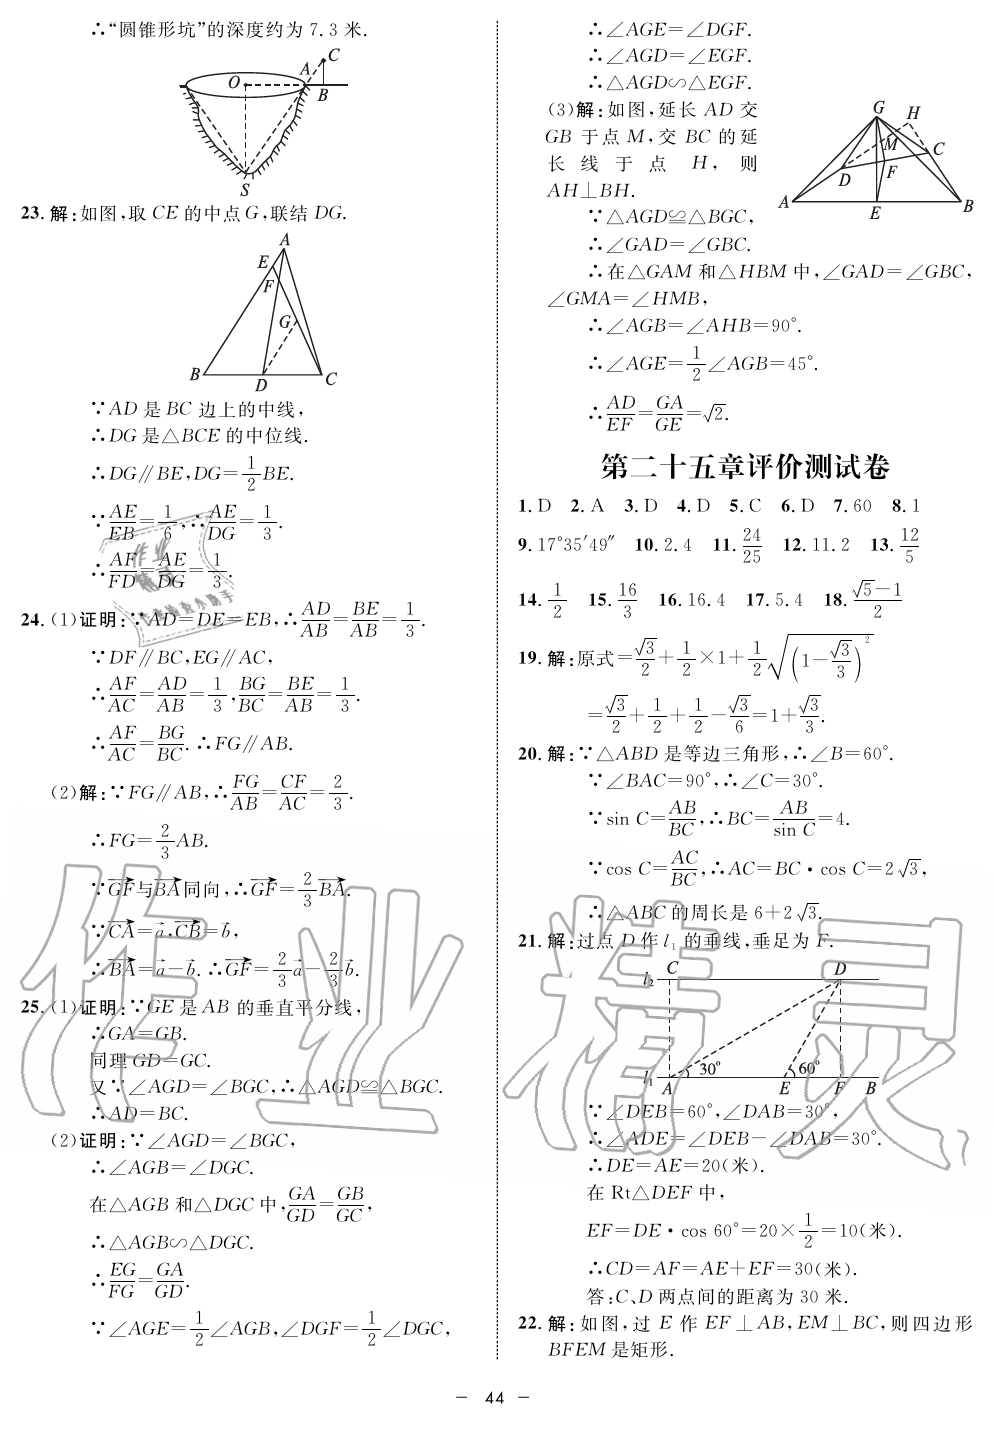 ∴“圆锥形坑”的深度约为 7.3 米.
A C
O
B
S
23. 解:如图,取 CE 的中点 G,联结 DG.
A
E
F
G
B D C
∵AD 是 BC 边上的中线,
∴DG 是△BCE 的中位线.
∴DG∥BE,DG=1/2 BE.
∵AE/EB=1/6,∴AE/DG=1/3.
∴AF/FD=AE/DG=1/3.
24. (1)证明:∵AD=DE=EB,∴AD/AB=BE/AB=1/3.
∵DF∥BC,EG∥AC,
∴AF/AC=AD/AB=1/3,BG/BC=BE/AB=1/3.
∴AF/AC=BG/BC. ∴FG∥AB.
(2)解:∵FG∥AB,∴FG/AB=CF/AC=2/3.
∴FG=2/3 AB.
∵GF→与BA→同向,∴GF→=2/3 BA→.
∵CA→=a→,CB→=b→,
∴BA→=a→-b→. ∴GF→=2/3 a→-2/3 b→.
25. (1)证明:∵GE 是 AB 的垂直平分线,
∴GA=GB.
同理 GD=GC.
又∵∠AGD=∠BGC,∴△AGD≌△BGC.
∴AD=BC.
(2)证明:∵∠AGD=∠BGC,
∴∠AGB=∠DGC.
在△AGB 和△DGC 中,GA/GD=GB/GC,
∴△AGB∽△DGC.
∴EG/FG=GA/GD.
∵∠AGE=1/2∠AGB,∠DGF=1/2∠DGC,
∴∠AGE=∠DGF.
∴∠AGD=∠EGF.
∴△AGD∽△EGF.
(3)解:如图,延长 AD 交
GB 于点 M,交 BC 的延
长线于点 H,则
AH⊥BH.
G H
M C
D F
A E B
∵△AGD≌△BGC,
∴∠GAD=∠GBC.
∴在△GAM 和△HBM 中,∠GAD=∠GBC,
∠GMA=∠HMB,
∴∠AGB=∠AHB=90°.
∴∠AGE=1/2∠AGB=45°.
∴AD/EF=GA/GE=√2.
第二十五章评价测试卷
1. D 2. A 3. D 4. D 5. C 6. D 7. 60 8. 1
9. 17°35′49″ 10. 2.4 11. 24/25 12. 11.2 13. 12/5
14. 1/2 15. 16/3 16. 16.4 17. 5.4 18. (√5-1)/2
19. 解:原式=√3/2+1/2×1+1/2√(1-√3/3)²
=√3/2+1/2+1/2-√3/6=1+√3/3.
20. 解:∵△ABD 是等边三角形,∴∠B=60°.
∵∠BAC=90°,∴∠C=30°.
∵sin C=AB/BC,∴BC=AB/sin C=4.
∵cos C=AC/BC,∴AC=BC·cos C=2√3,
∴△ABC 的周长是 6+2√3.
21. 解:过点 D 作 l₁ 的垂线,垂足为 F.
l₂ C D
30° 60°
l₁ A E F B
∵∠DEB=60°,∠DAB=30°,
∴∠ADE=∠DEB-∠DAB=30°.
∴DE=AE=20(米).
在 Rt△DEF 中,
EF=DE·cos 60°=20×1/2=10(米).
∴CD=AF=AE+EF=30(米).
答:C、D 两点间的距离为 30 米.
22. 解:如图,过 E 作 EF⊥AB,EM⊥BC,则四边形
BFEM 是矩形.
作业精灵
— 44 —